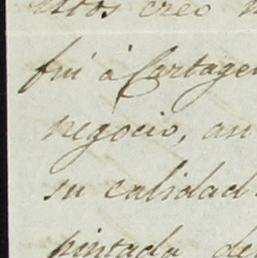 creo
fui à Cartagen
negocio, an
su calidad
pintada de